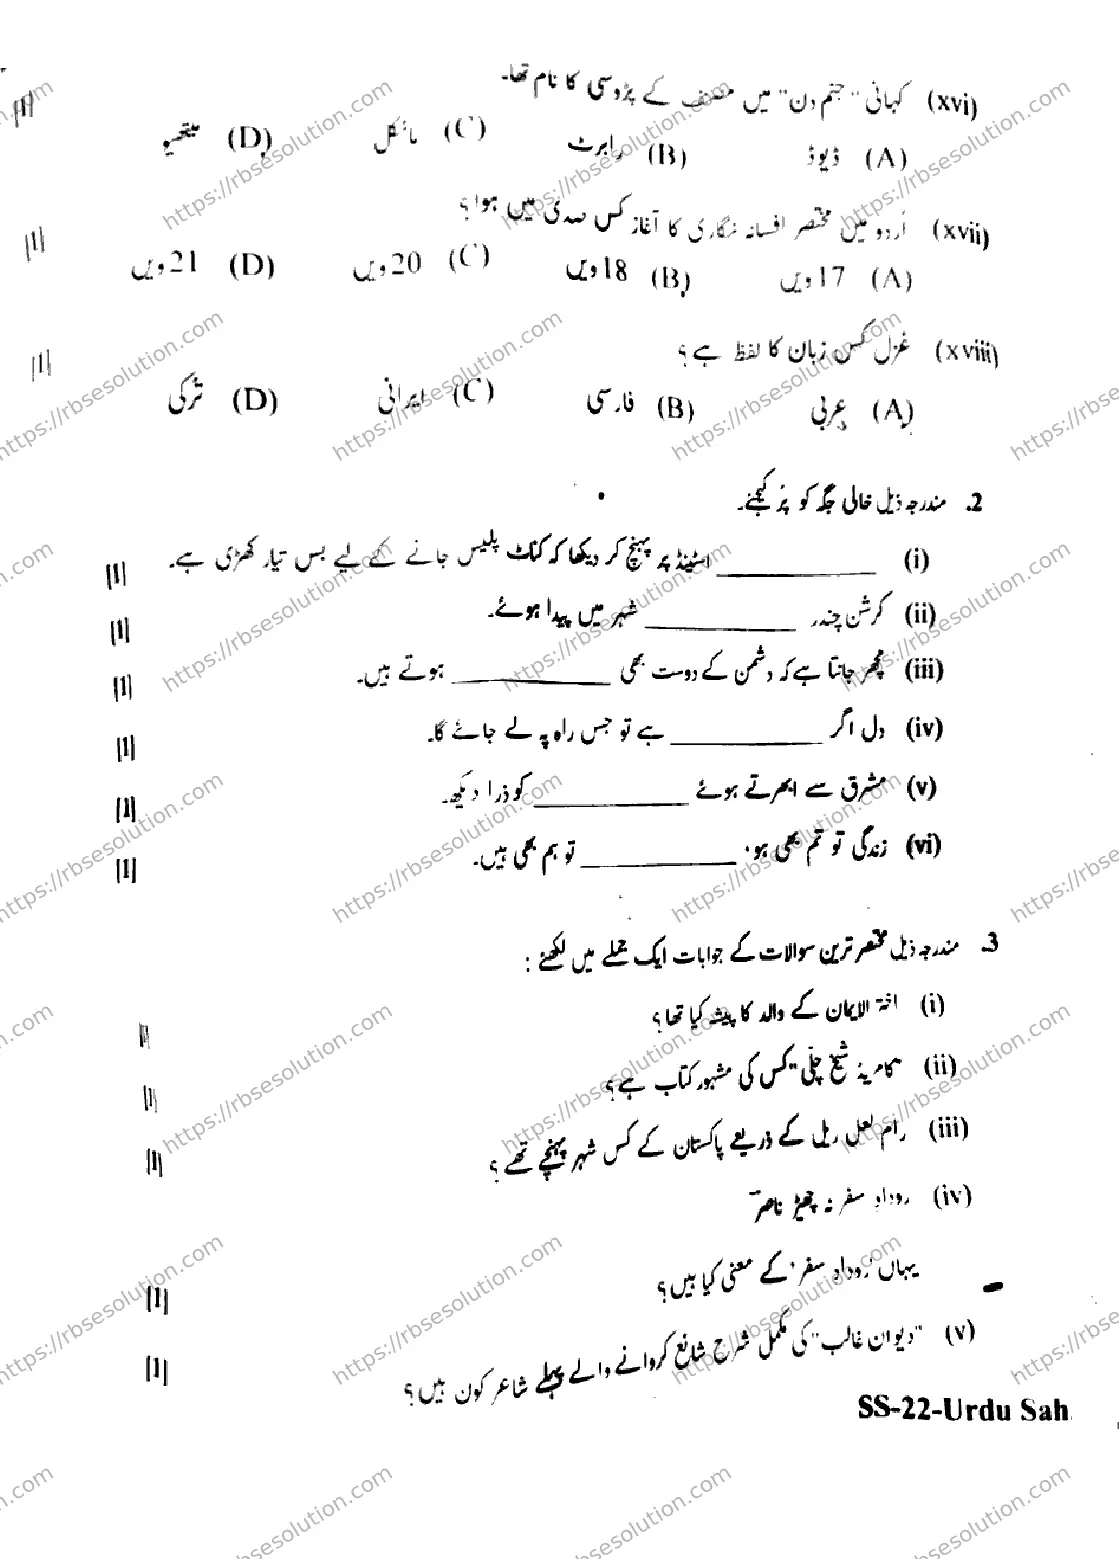 (xvi) کہانی "جنم دن" میں مصنف کے پڑوسی کا نام تھا۔ [1]
(A) ڈیوڈ (B) رابرٹ (C) مائکل (D) میتھیو
(xvii) اُردو میں مختصر افسانہ نگاری کا آغاز کس صدی میں ہوا؟ [1]
(A) 17ویں (B) 18ویں (C) 20ویں (D) 21ویں
(xviii) غزل کس زبان کا لفظ ہے؟ [1]
(A) عربی (B) فارسی (C) ایرانی (D) ترکی
2. مندرجہ ذیل خالی جگہ کو پُر کیجئے۔
(i) __________ اسٹینڈ پر پہنچ کر دیکھا کہ کناٹ پلیس جانے کے لیے بس تیار کھڑی ہے۔ [1]
(ii) کرشن چندر __________ شہر میں پیدا ہوئے۔ [1]
(iii) مچھر جانتا ہے کہ دشمن کے دوست بھی __________ ہوتے ہیں۔ [1]
(iv) دل اگر __________ ہے تو جس راہ پہ لے جائے گا۔ [1]
(v) مشرق سے ابھرتے ہوئے __________ کو ذرا دیکھ۔ [1]
(vi) زندگی تو تم بھی ہو، __________ تو ہم بھی ہیں۔ [1]
3. مندرجہ ذیل مختصر ترین سوالات کے جوابات ایک جملے میں لکھئے :
(i) اختر الایمان کے والد کا پیشہ کیا تھا؟ [1]
(ii) "کامریڈ شیخ چلّی" کس کی مشہور کتاب ہے؟ [1]
(iii) رام لعل ریل کے ذریعے پاکستان کے کس شہر پہنچے تھے؟ [1]
(iv) رودادِ سفر نہ چھیڑ ناصر
یہاں 'رودادِ سفر' کے معنی کیا ہیں؟ [1]
(v) "دیوان غالب" کی مکمل شرح شائع کروانے والے پہلے شاعر کون ہیں؟ [1]
SS-22-Urdu Sah.
https://rbsesolution.com